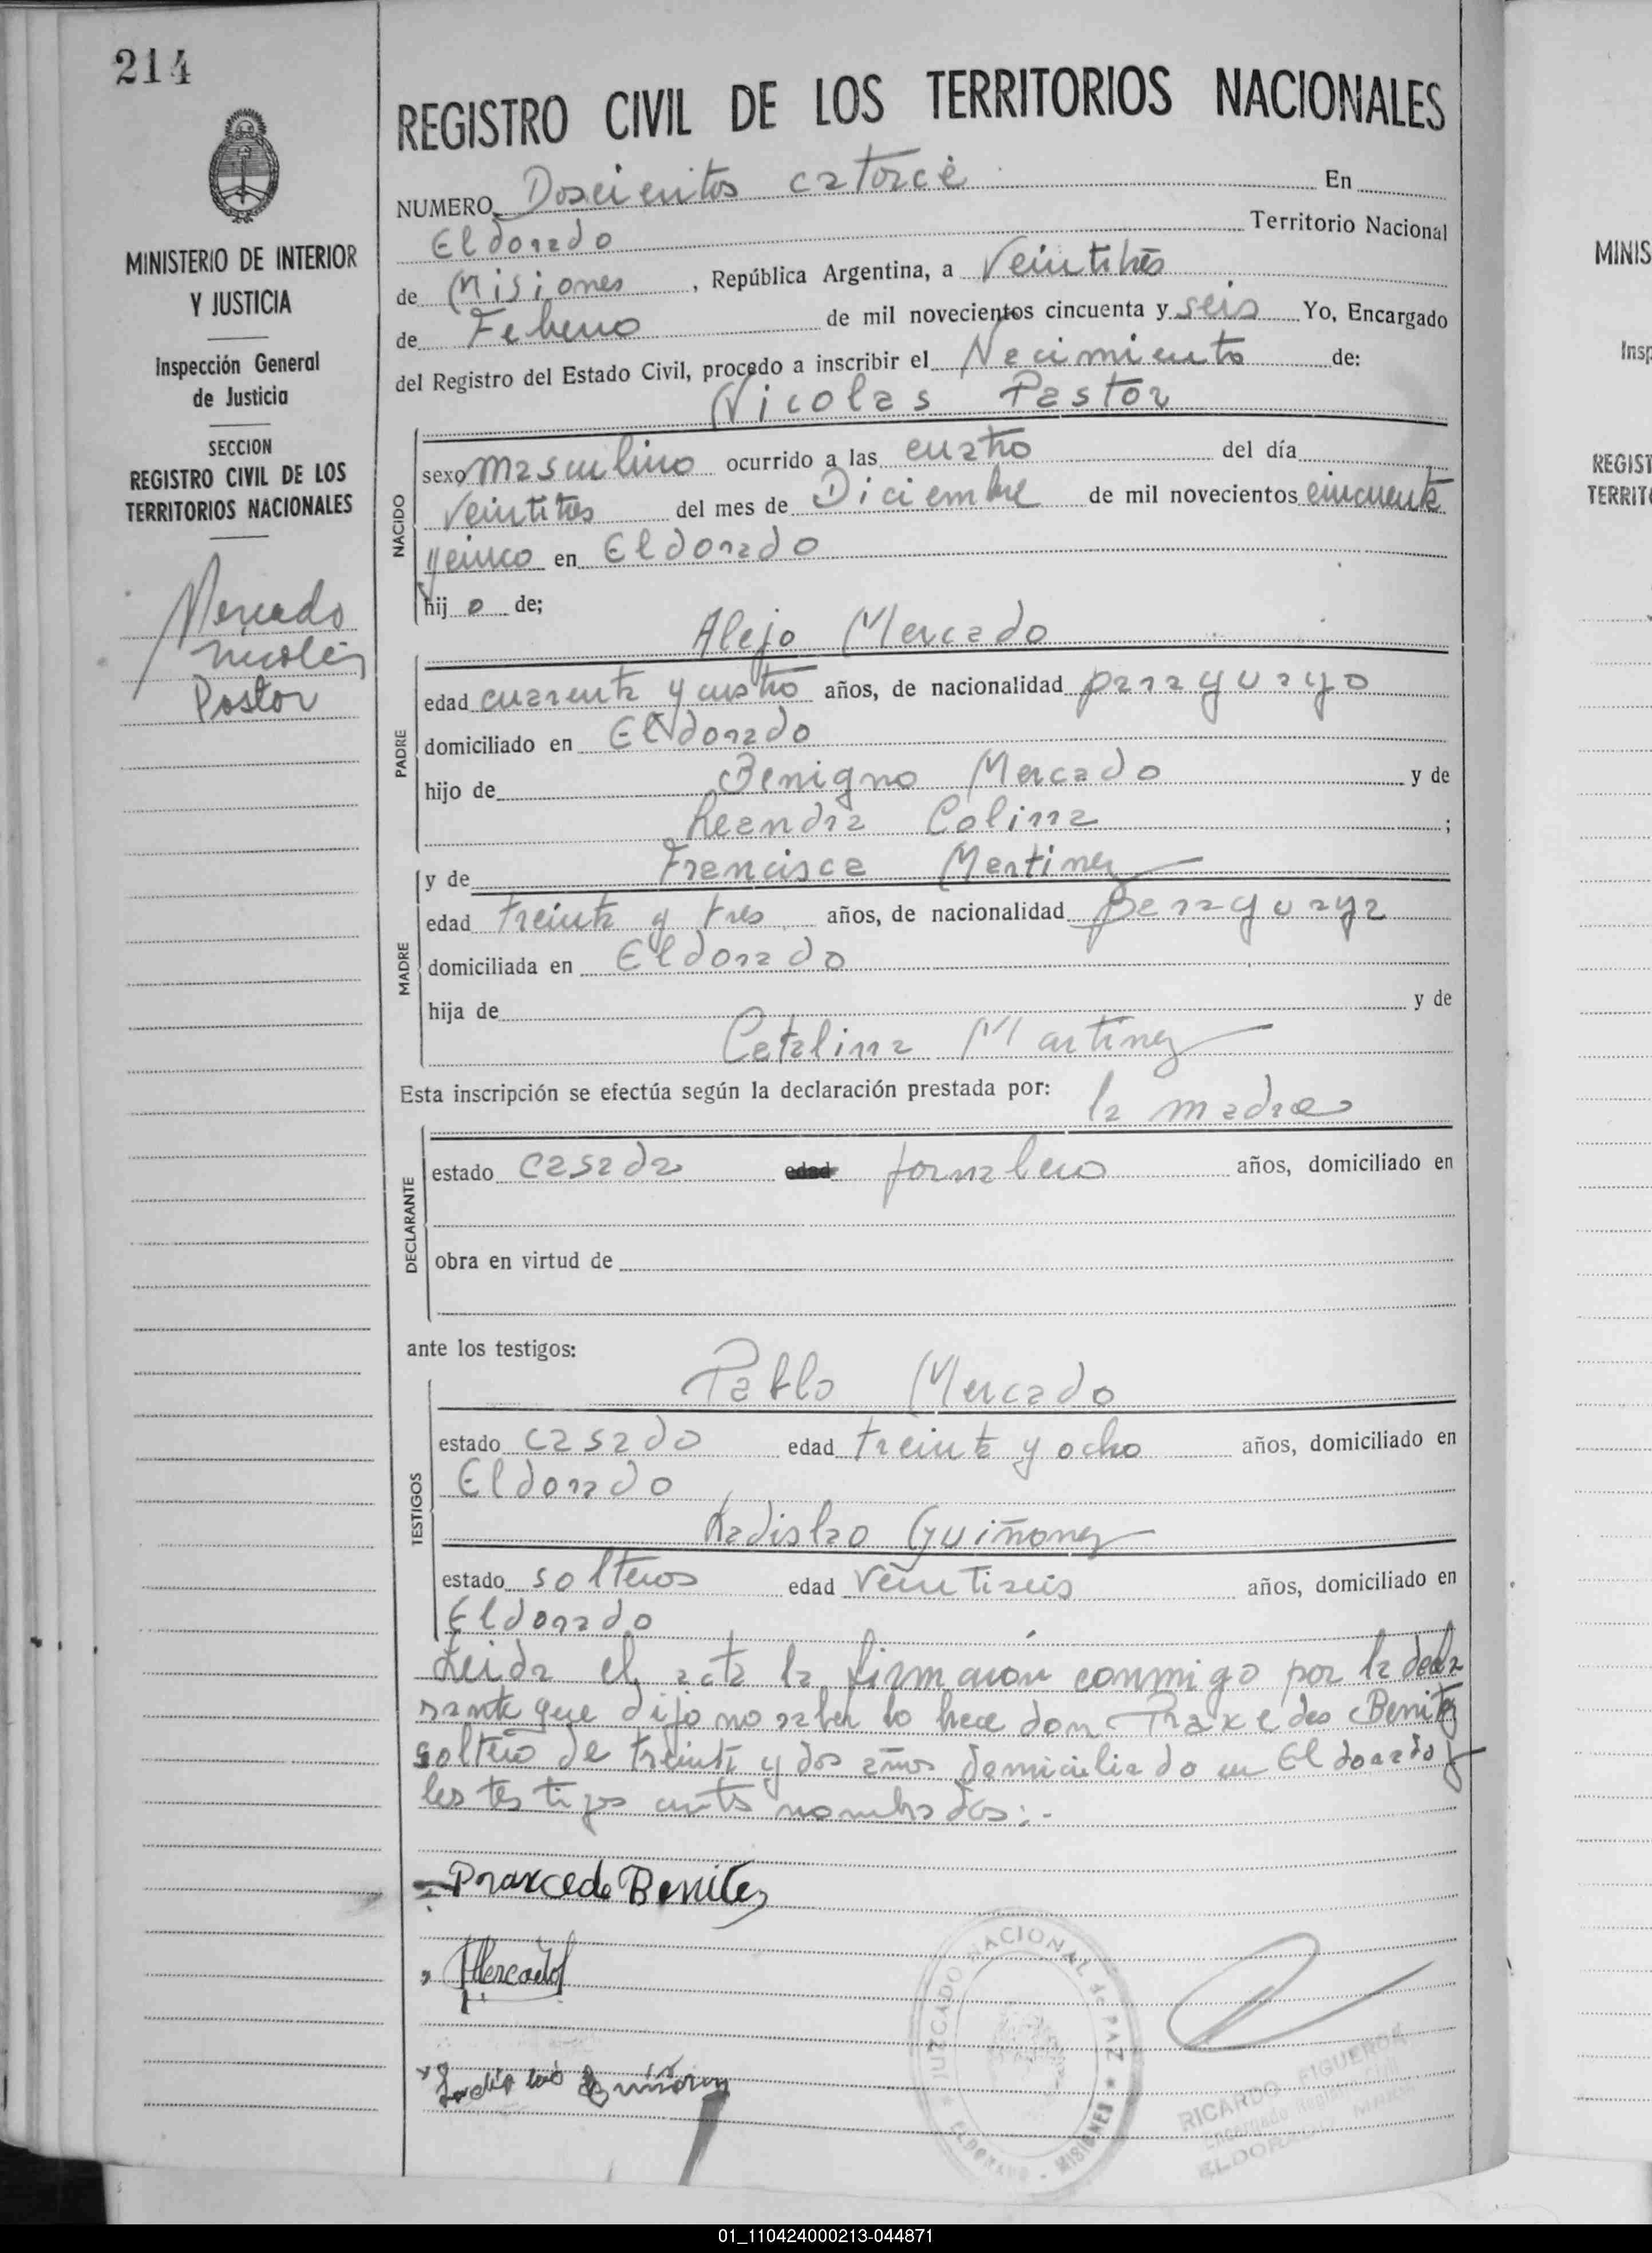 214
REGISTRO CIVIL DE LOS TERRITORIOS NACIONALES
NUMERO Doscientos catorce En
Eldorado Territorio Nacional
de Misiones, República Argentina, a Veintitrés
de Febrero de mil novecientos cincuenta y seis Yo, Encargado
del Registro del Estado Civil, procedo a inscribir el Nacimiento de:
Nicolas Pastor
NACIDO
sexo masculino ocurrido a las cuatro del día
Veintitres del mes de Diciembre de mil novecientos cincuenta
y cinco en Eldorado
hijo de;
Alejo Mercado
PADRE
edad cuarenta y cuatro años, de nacionalidad paraguayo
domiciliado en Eldorado
hijo de Benigno Mercado y de
Leandra Colina;
y de Francisca Martinez
MADRE
edad treinta y tres años, de nacionalidad paraguaya
domiciliada en Eldorado
hija de y de
Catalina Martinez
Esta inscripción se efectúa según la declaración prestada por: la madre
DECLARANTE
estado casada edad jornalero años, domiciliado en
obra en virtud de
ante los testigos:
Pablo Mercado
TESTIGOS
estado casado edad treinta y ocho años, domiciliado en
Eldorado
Ladislao Guiñonez
estado solteros edad Veintiseis años, domiciliado en
Eldorado
Leida el acta la firmaron conmigo por la decla
rante que dijo no saber lo hace don Praxedes Benitez
soltero de treinta y dos años domiciliado en Eldorado y
los testigos antes nombrados:.-
Praxcede Benitez
Mercado
JUZGADO NACIONAL de PAZ * ELDORADO - MISIONES *
RICARDO FIGUEROA
Encargado Registro Civil
ELDORADO
MINISTERIO DE INTERIOR
Y JUSTICIA
Inspección General
de Justicia
SECCION
REGISTRO CIVIL DE LOS
TERRITORIOS NACIONALES
Mercado
Nicolás
Pastor
MINIS
Insp
REGIST
TERRIT
01_110424000213-044871